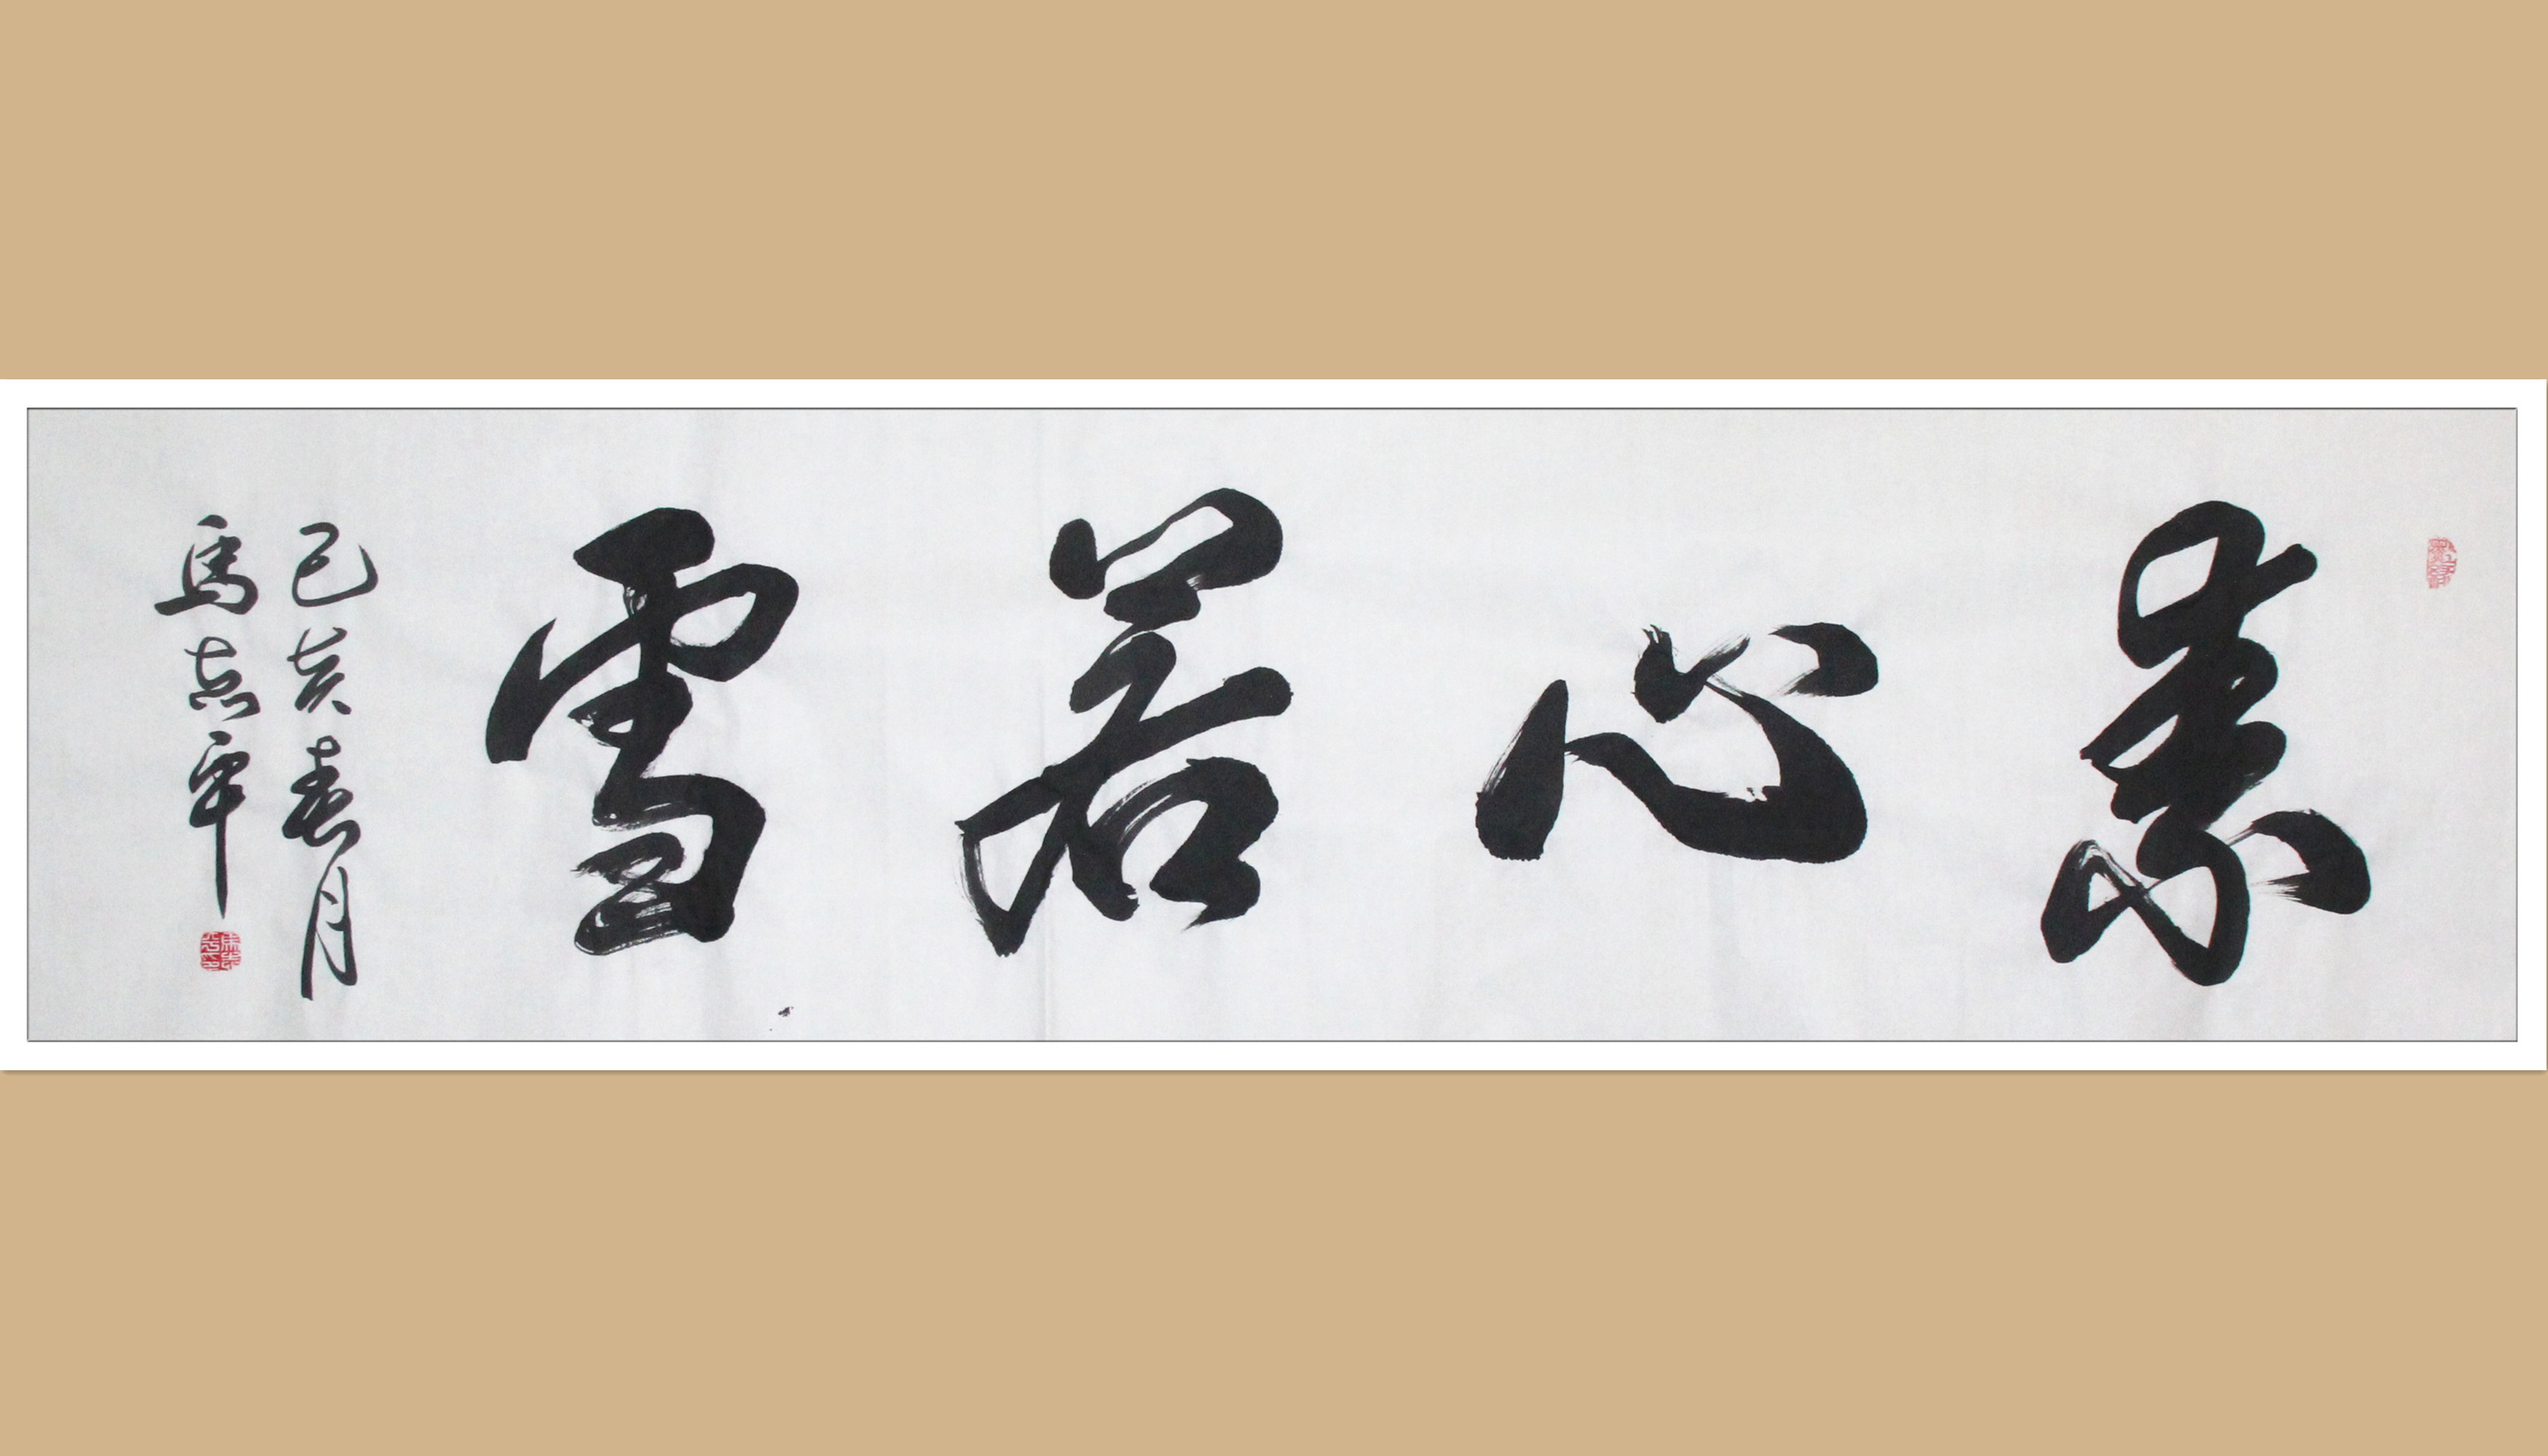 素心若雪
己亥春月
馬志平